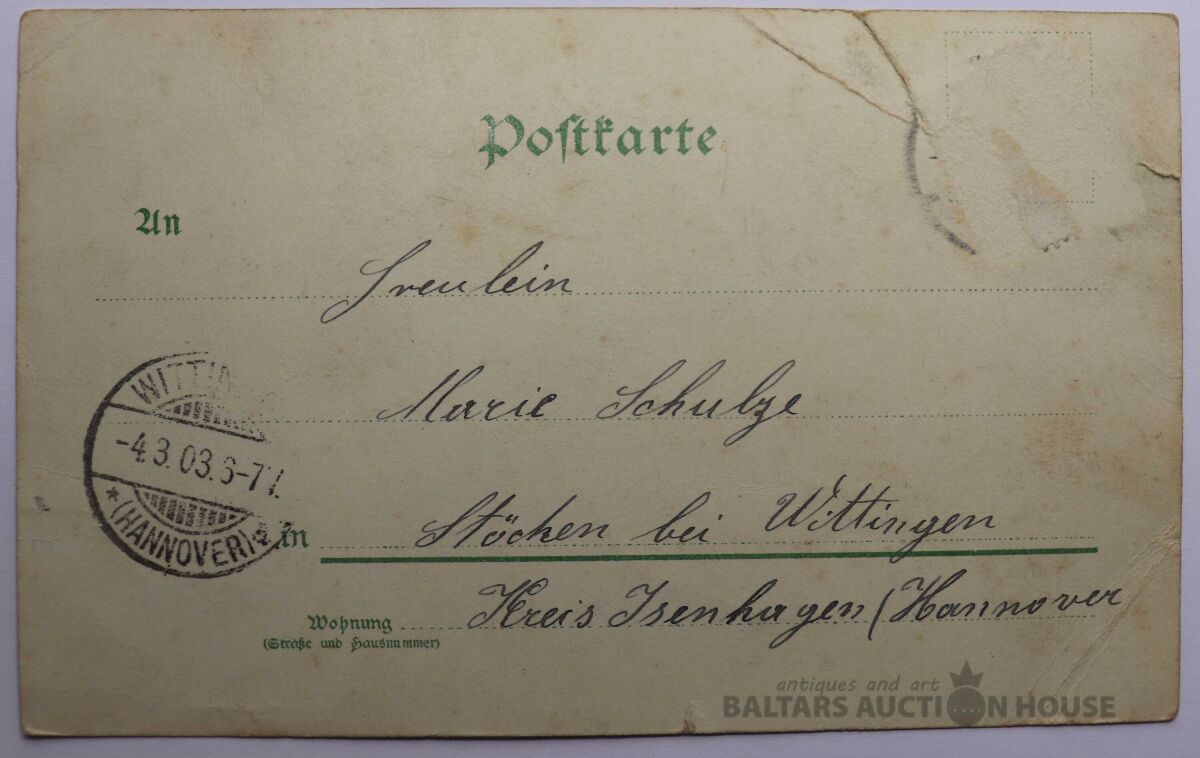 Postkarte
An
Freulein
Marie Schulze
in Stöcken bei Wittingen
Wohnung Kreis Isenhagen (Hannover
(Straße und Hausnummer)
-4.3.03.6-7
* (HANNOVER)
antiques and art
BALTARS AUCTION HOUSE